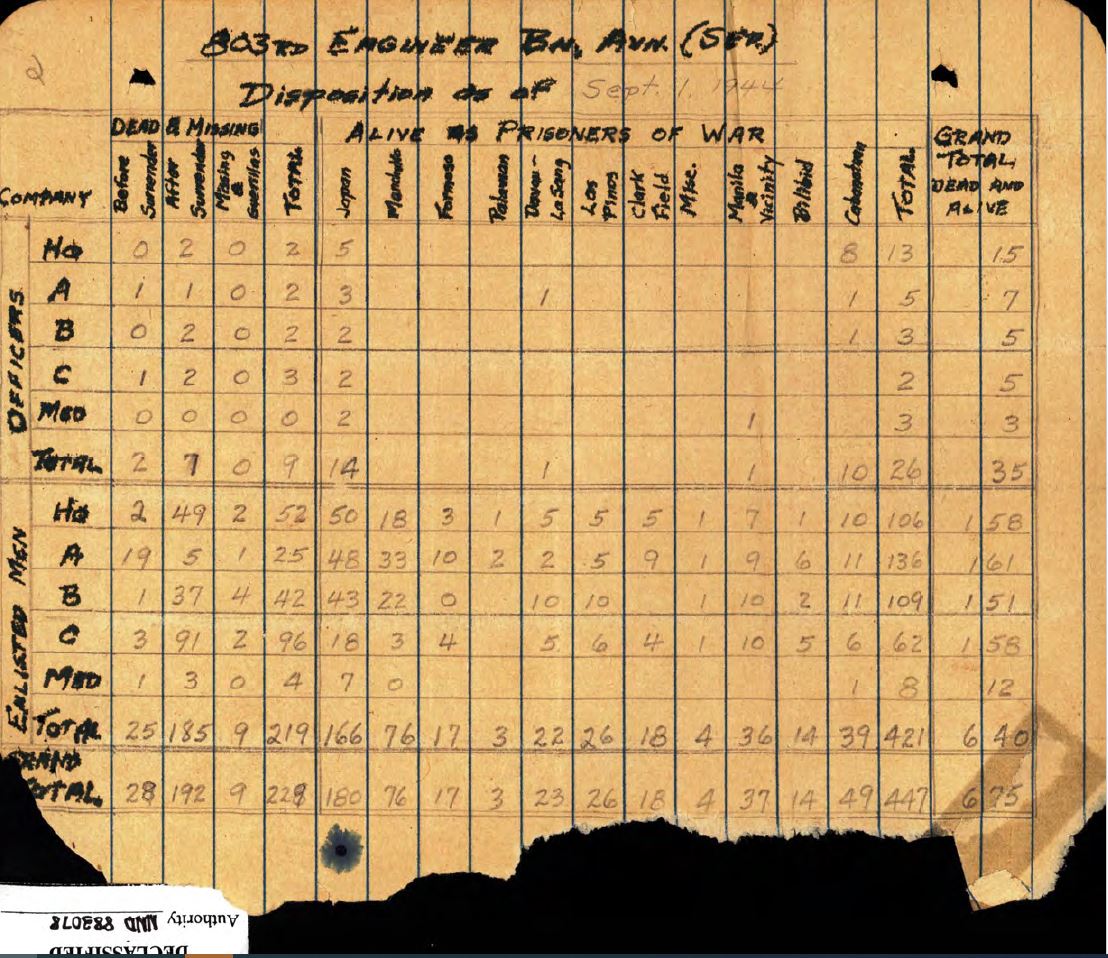 803RD ENGINEER BN. AVN. (SEP.)
Disposition as of Sept. 1, 1944
DEAD & MISSING ALIVE AS PRISONERS OF WAR GRAND TOTAL, DEAD AND ALIVE
COMPANY Before Surrender After Surrender Missing & Guerillas TOTAL Japan Formosa Palawan Davao-LaSang Las Pinos Clark Field Misc. Manila & Vicinity Bilibid Cabanatuan TOTAL
OFFICERS
HQ 0 2 0 2 5 8 13 15
A 1 1 0 2 3 1 1 5 7
B 0 2 0 2 2 1 3 5
C 1 2 0 3 2 2 5
MED 0 0 0 0 2 1 3 3
TOTAL 2 7 0 9 14 1 1 10 26 35
ENLISTED MEN
HQ 2 49 2 52 50 18 3 1 5 5 5 1 7 1 10 106 158
A 19 5 1 25 48 33 10 2 2 5 9 1 9 6 11 136 161
B 1 37 4 42 43 22 0 10 10 1 10 2 11 109 151
C 3 91 2 96 18 3 4 5 6 4 1 10 5 6 62 158
MED 1 3 0 4 7 0 1 8 12
TOTAL 25 185 9 219 166 76 17 3 22 26 18 4 36 14 39 421 640
GRAND TOTAL 28 192 9 228 180 76 17 3 23 26 18 4 37 14 49 447 675
Authority NND 883078
DECLASSIFIED